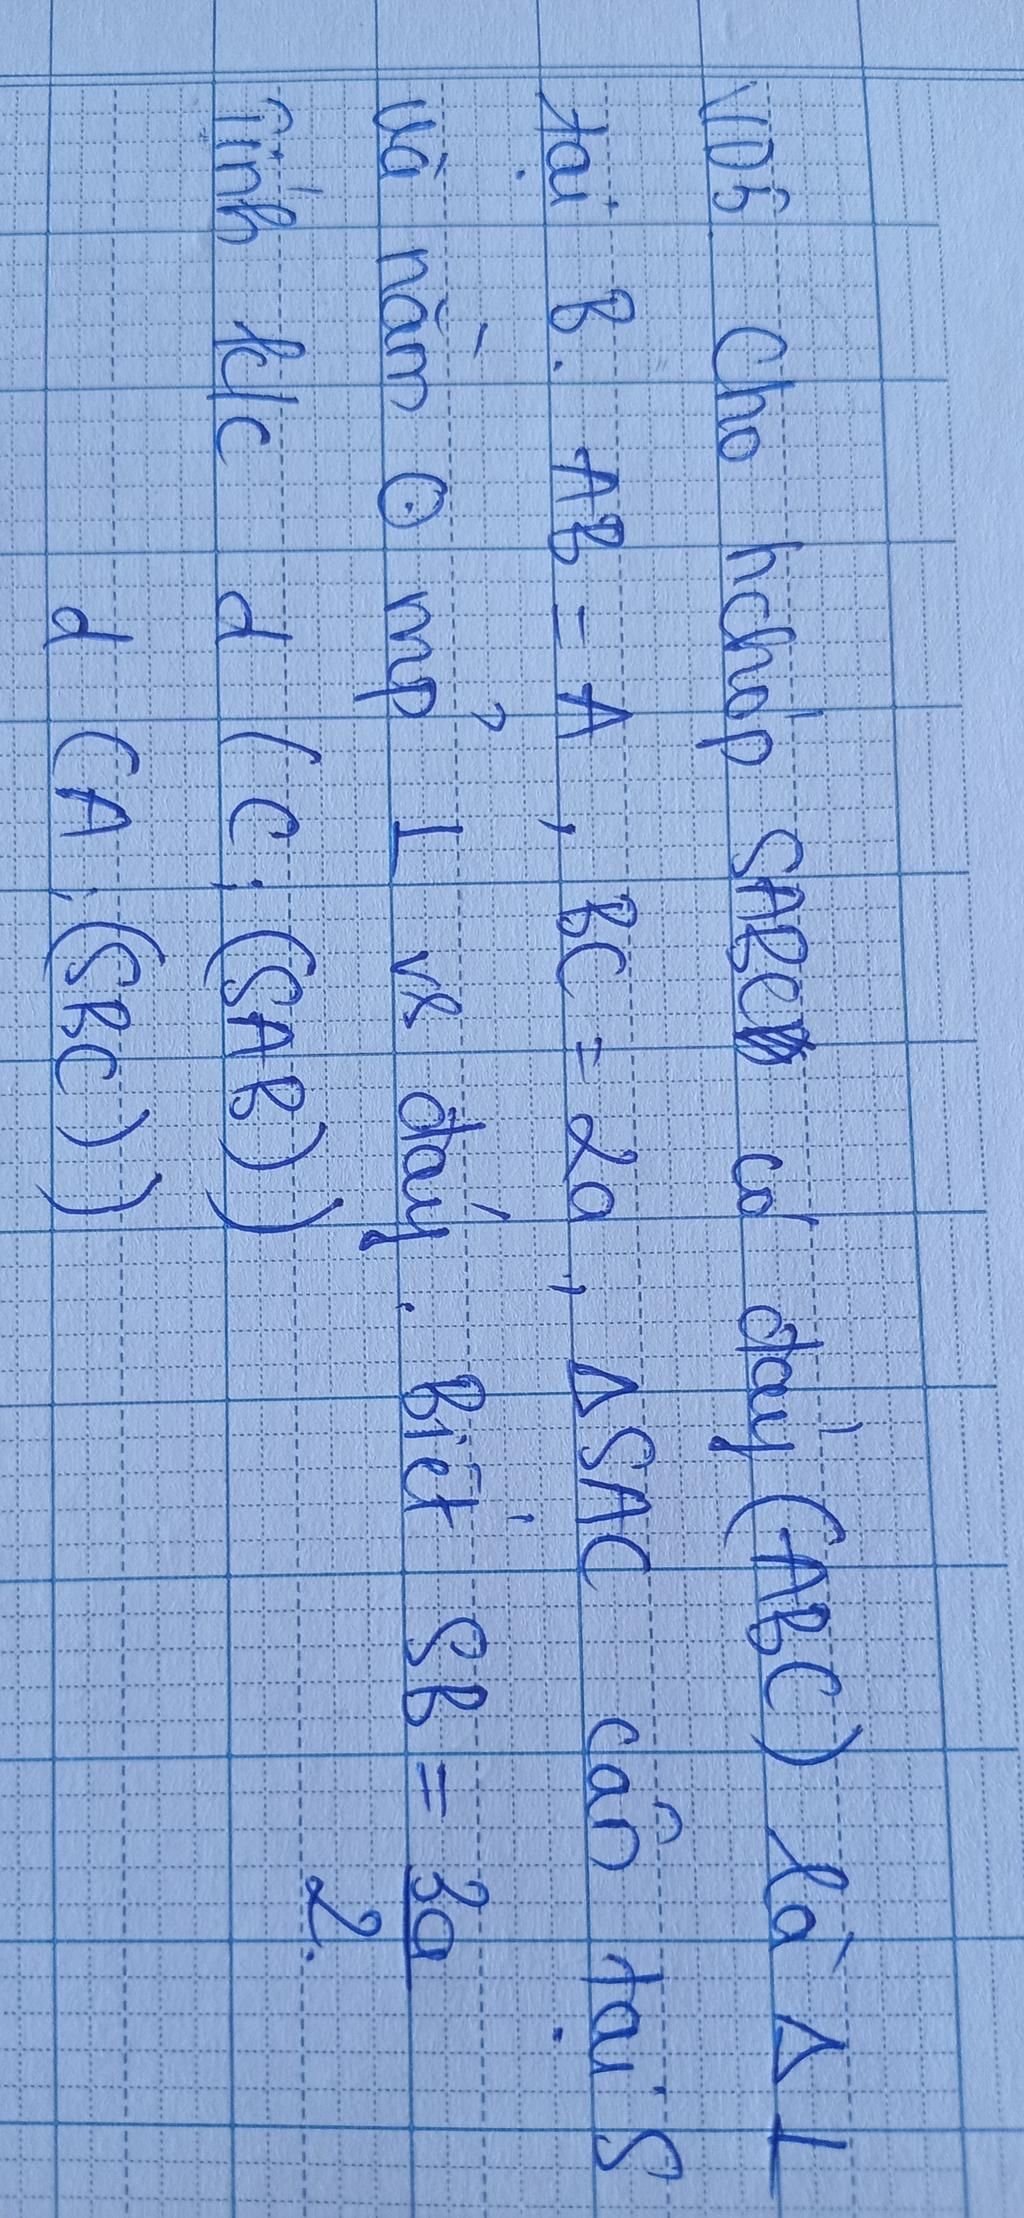 VD5 Cho hchóp SABC có đáy (ABC) là Δ ⊥
tại B. AB = A, BC = 2a, ΔSAC cân tại S
và nằm ở mp ⊥ vs đáy. Biết SB = 3a/2.
Tính k/c d (C; (SAB))
d (A; (SBC))